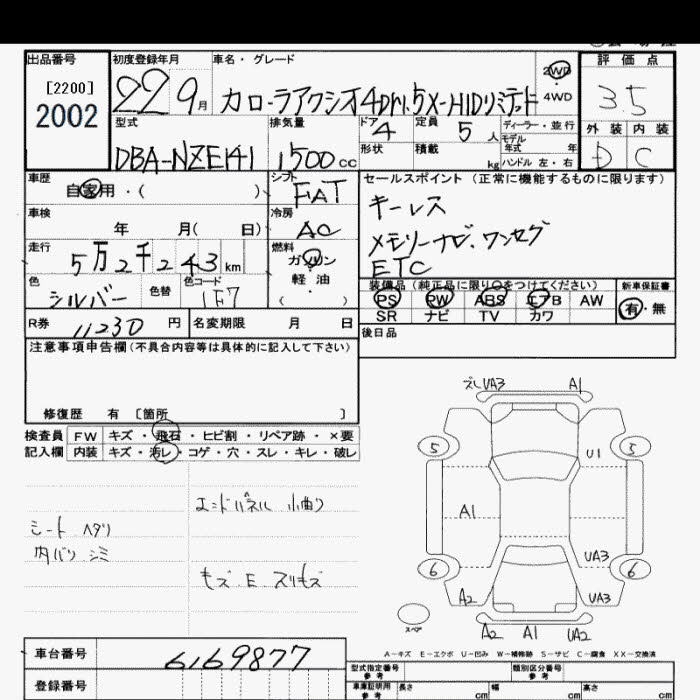 出品番号 初度登録年月 車名・グレード 評価点
[2200] 2002 22 9月 カローラアクシオ4Dr1.5X-HIDリミテッド 2WD ・ 4WD 3.5
外装 内装
D C
型式 排気量 ドア 4 定員 5人 ディーラー・並行
モデル年式 年
DBA-NZE141 1500cc 形状 積載 kg ハンドル 左・右
車歴 自家用・( ) シフト FAT セールスポイント (正常に機能するものに限ります)
車検 年 月( 日) 冷房 AC キーレス
メモリーナビ、ワンセグ
ETC
走行 5万2千243km 燃料 ガソリン・軽油・( )
色 シルバー 色替 色コード 1F7
装備品 (純正品に限り○をつけてください) 新車保証書
PS PW ABS エアB AW 有・無
SR ナビ TV カワ
R券 11230円 名変期限 月 日 後日品
注意事項申告欄(不具合内容等は具体的に記入して下さい)
修復歴 有 [箇所 ]
検査員記入欄 FW キズ・飛石・ヒビ割・リペア跡・×要
内装 キズ・汚レ・コゲ・穴・スレ・キレ・破レ
エンドパネル 小曲り
シート ヘタリ
内バリ シミ
キズ E スリキズ
ズレUA3 A1
5 5
U1
A1
UA3
6 6
A2 UA3
スペア
A2 A1 UA2
A-キズ E-エクボ U-凹み W-補修跡 S-サビ C-腐食 XX-交換済
車台番号 6169877
型式指定番号 参考 類別区分番号 参考
登録番号 車庫証明用 参考 長さ cm 幅 cm 高さ cm